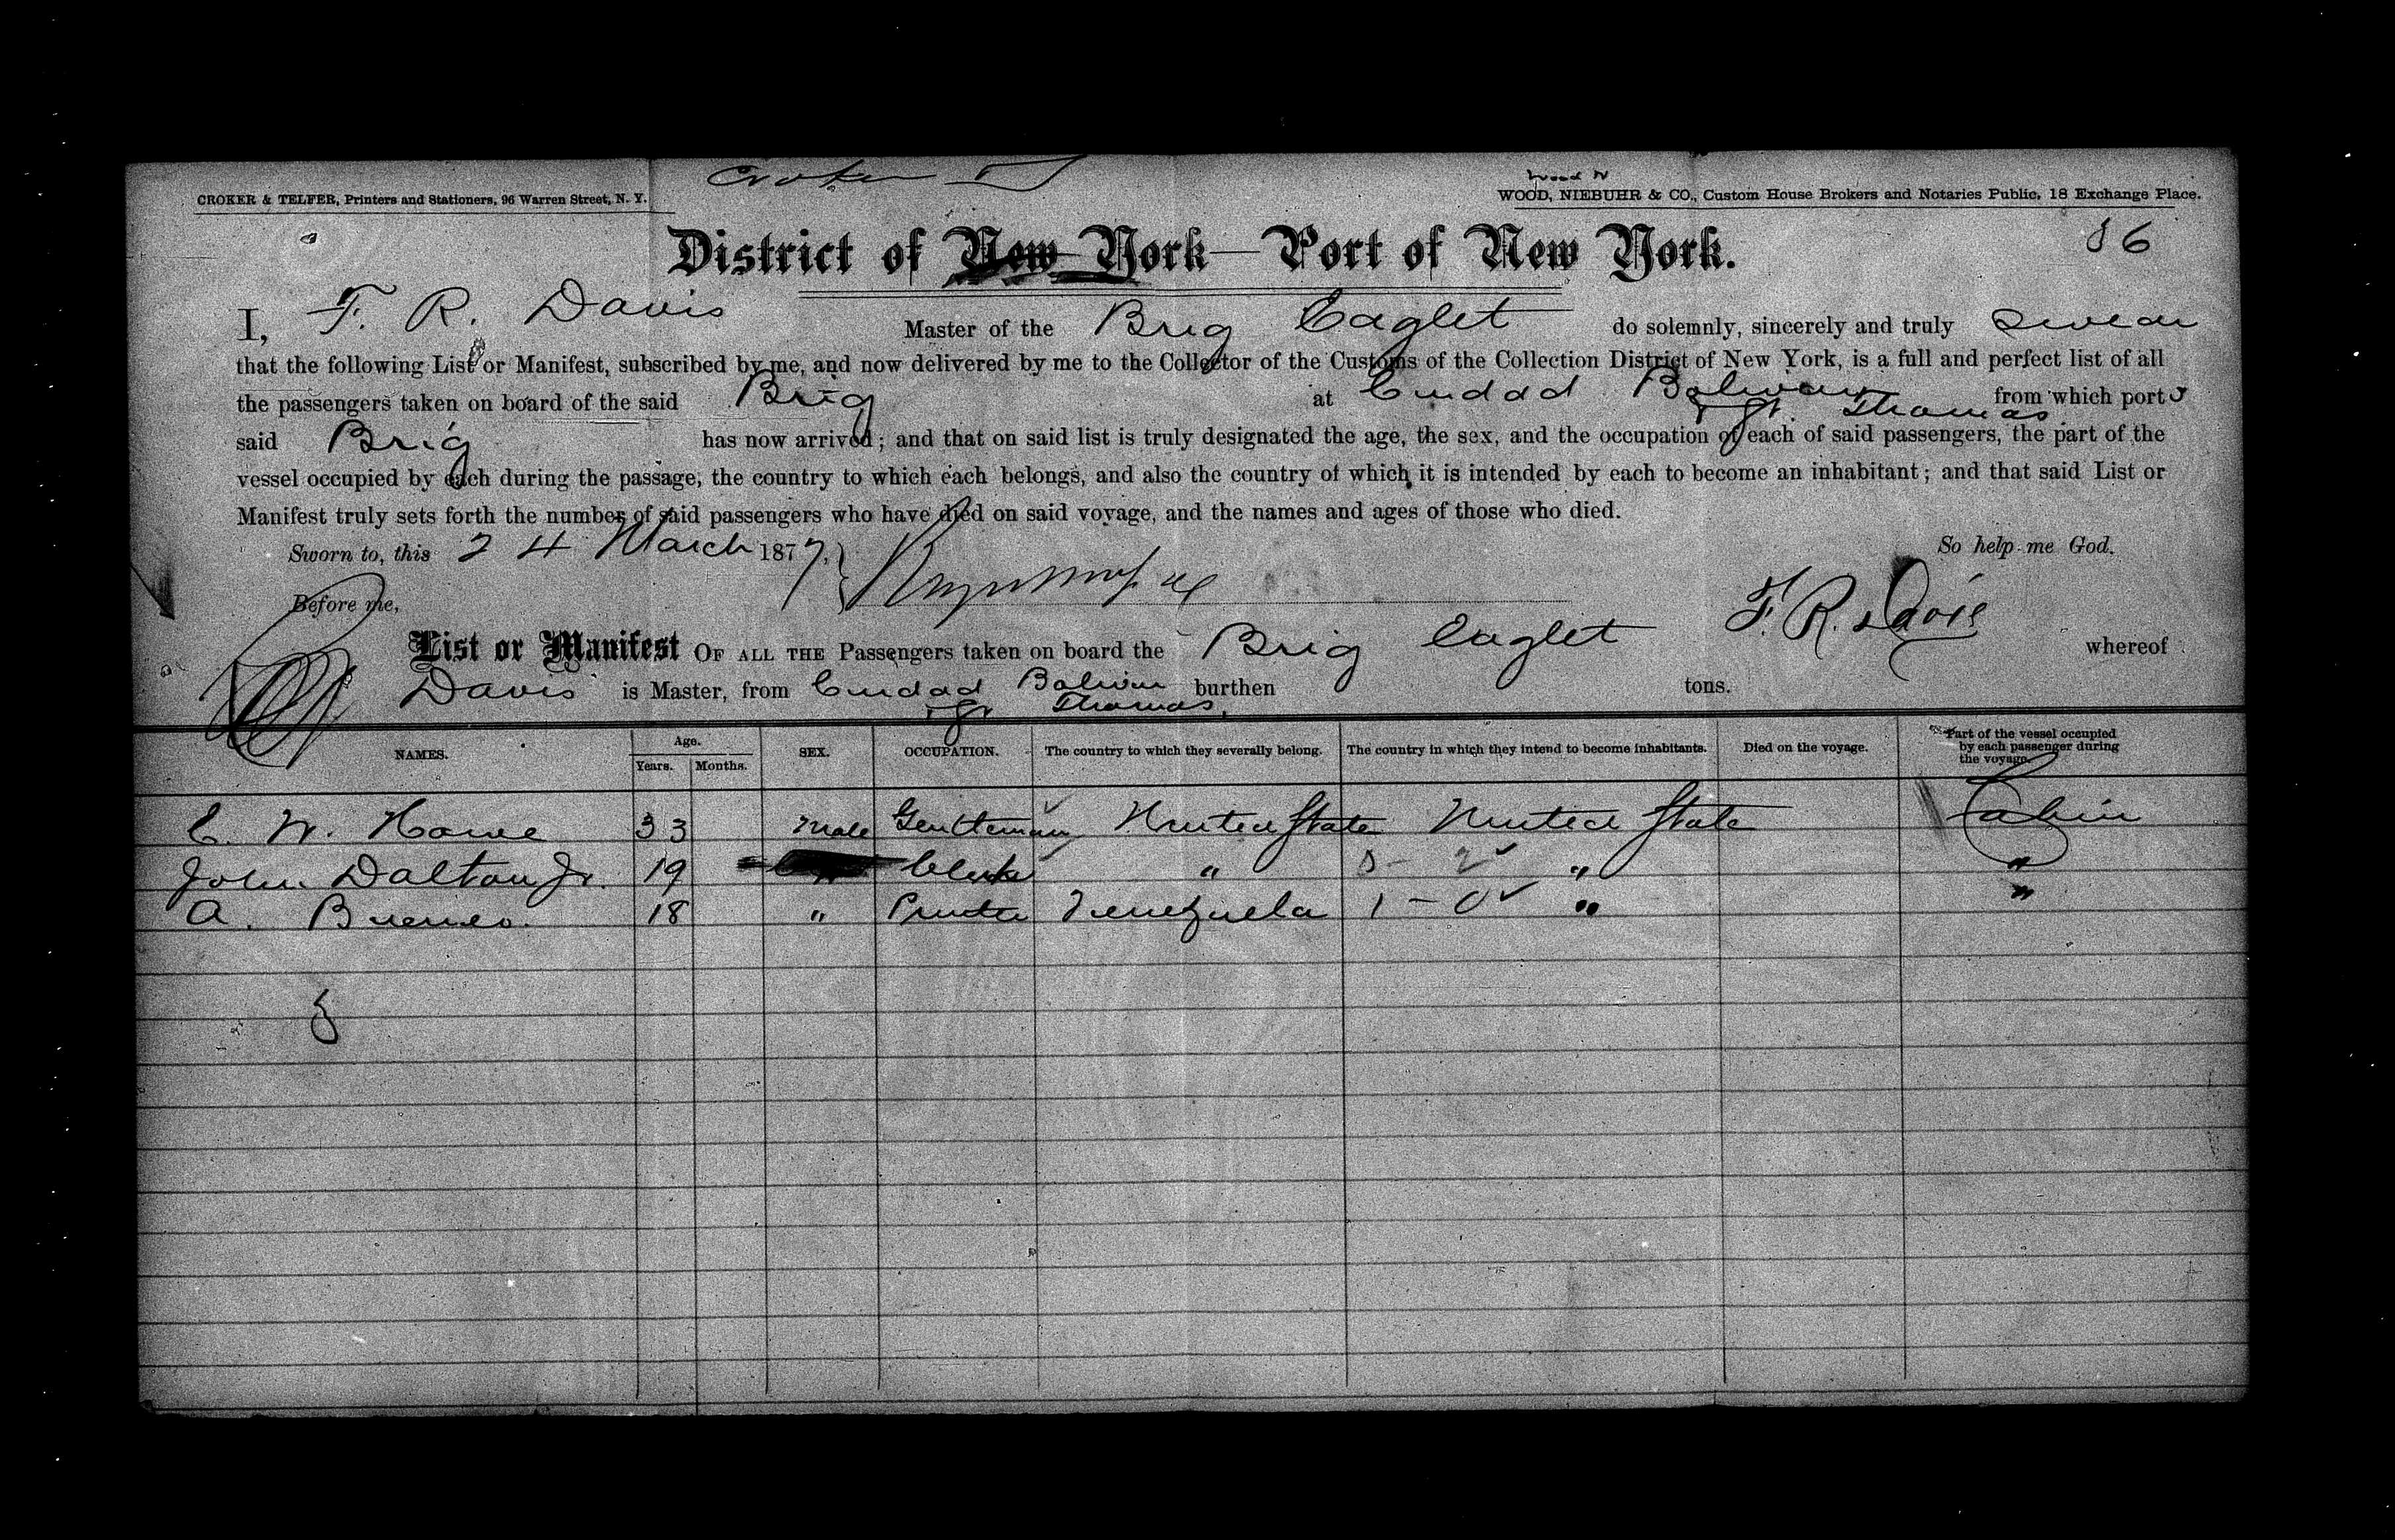 CROKER & TELFER, Printers and Stationers, 96 Warren Street, N. Y.
WOOD, NIEBUHR & CO., Custom House Brokers and Notaries Public, 18 Exchange Place.
District of New York—Port of New York.
86
I, F. R. Davis Master of the Brig Eaglet do solemnly, sincerely and truly swear
that the following List or Manifest, subscribed by me, and now delivered by me to the Collector of the Customs of the Collection District of New York, is a full and perfect list of all
the passengers taken on board of the said Brig at Ciudad Bolivar from which port
St. Thomas
said Brig has now arrived; and that on said list is truly designated the age, the sex, and the occupation of each of said passengers, the part of the
vessel occupied by each during the passage, the country to which each belongs, and also the country of which it is intended by each to become an inhabitant; and that said List or
Manifest truly sets forth the number of said passengers who have died on said voyage, and the names and ages of those who died.
Sworn to, this 24 March 1877. So help me God.
Before me, F. R. Davis
List or Manifest OF ALL THE Passengers taken on board the Brig Eaglet whereof
Davis is Master, from Ciudad Bolivar burthen tons.
St Thomas
NAMES. Age. Years. Months. SEX. OCCUPATION. The country to which they severally belong. The country in which they intend to become inhabitants. Died on the voyage. Part of the vessel occupied by each passenger during the voyage.
C. W. Howe 33 Male Gentleman United State United State Cabin
John Dalton Jr. 19 Clerk " 3 - 2 " "
A. Bueno. 18 " Printer Venezuela 1 - 0 " "